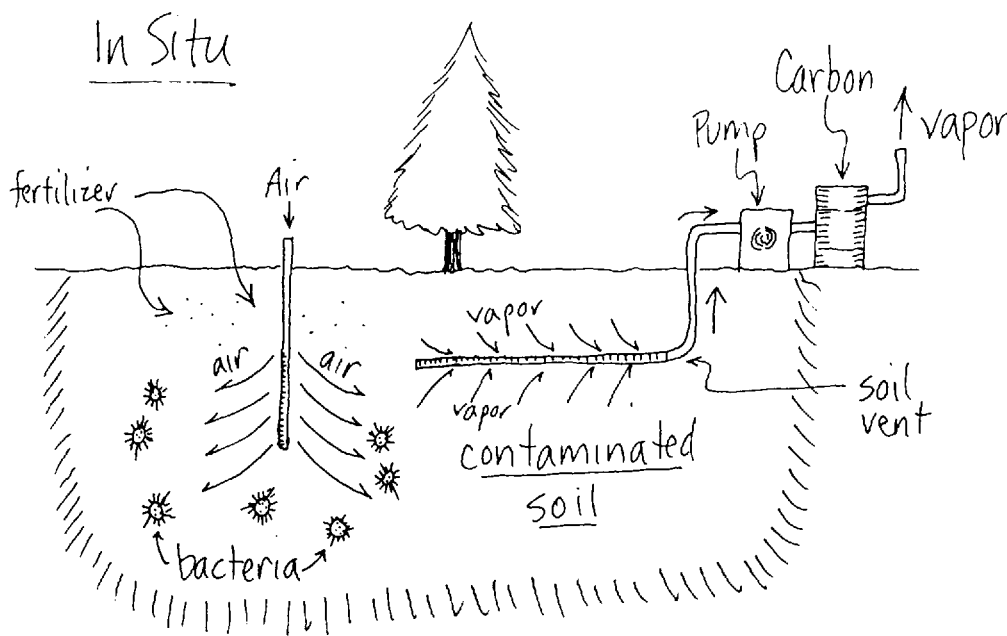 In Situ
Carbon
Pump
vapor
fertilizer
Air
vapor
air
air
vapor
soil
vent
contaminated
soil
bacteria